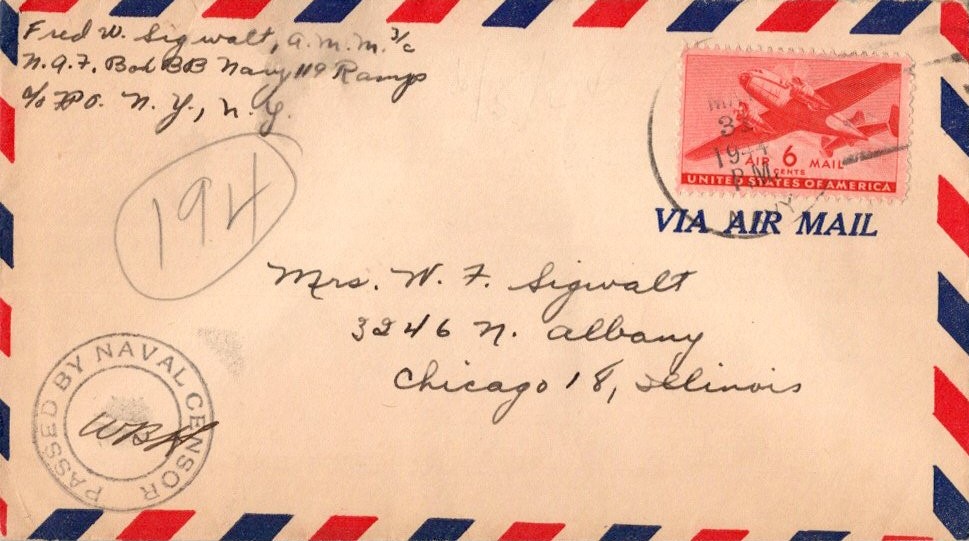 Fred W. Sigwalt, A.M.M. 3/c
N.A.F. Box BB Navy 119 Ramps
c/o FPO. N.Y., N.Y.
194
3
1944
P.M.
AIR 6 MAIL
CENTS
UNITED STATES OF AMERICA
VIA AIR MAIL
Mrs. W. F. Sigwalt
3246 N. Albany
Chicago 18, Illinois
PASSED BY NAVAL CENSOR
WBH